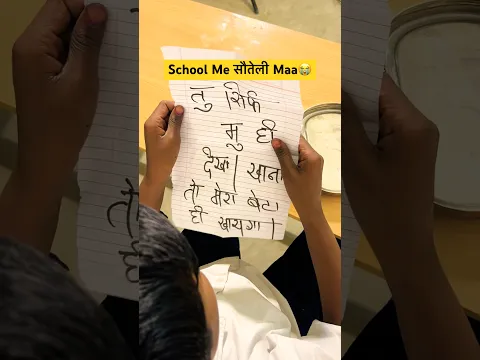 School Me सौतेली Maa😭
तु सिर्फ
मु ही
देखा। खाना
तो मेरा बेटा
ही खायगा।